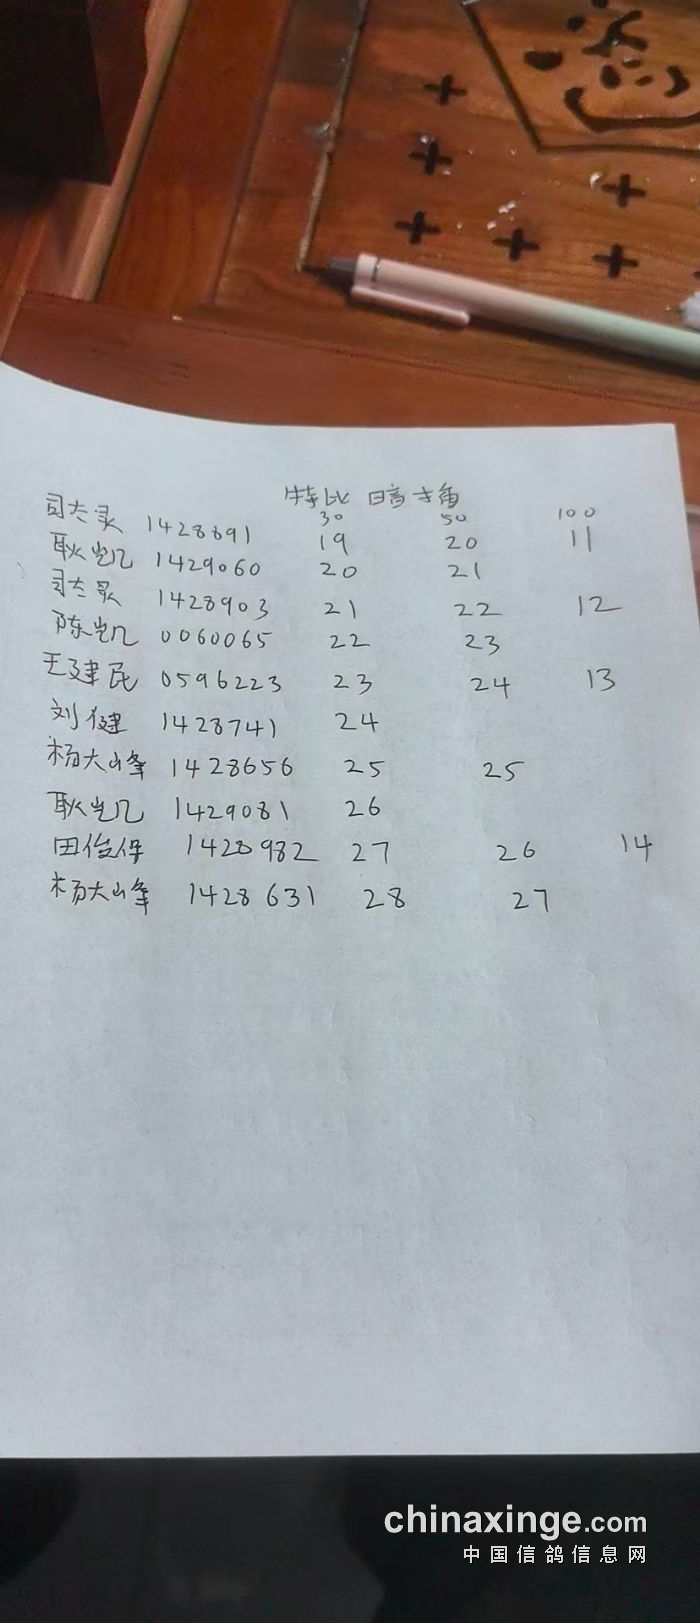 特比
30 50 100
1428691 19 20 11
耿凯 1429060 20 21
1428903 21 22 12
陈凯 0060065 22 23
王建民 0596223 23 24 13
刘健 1428741 24
杨大山峰 1428656 25 25
耿凯 1429081 26
田俊保 1428982 27 26 14
杨大山峰 1428631 28 27
chinaxinge.com
中国信鸽信息网